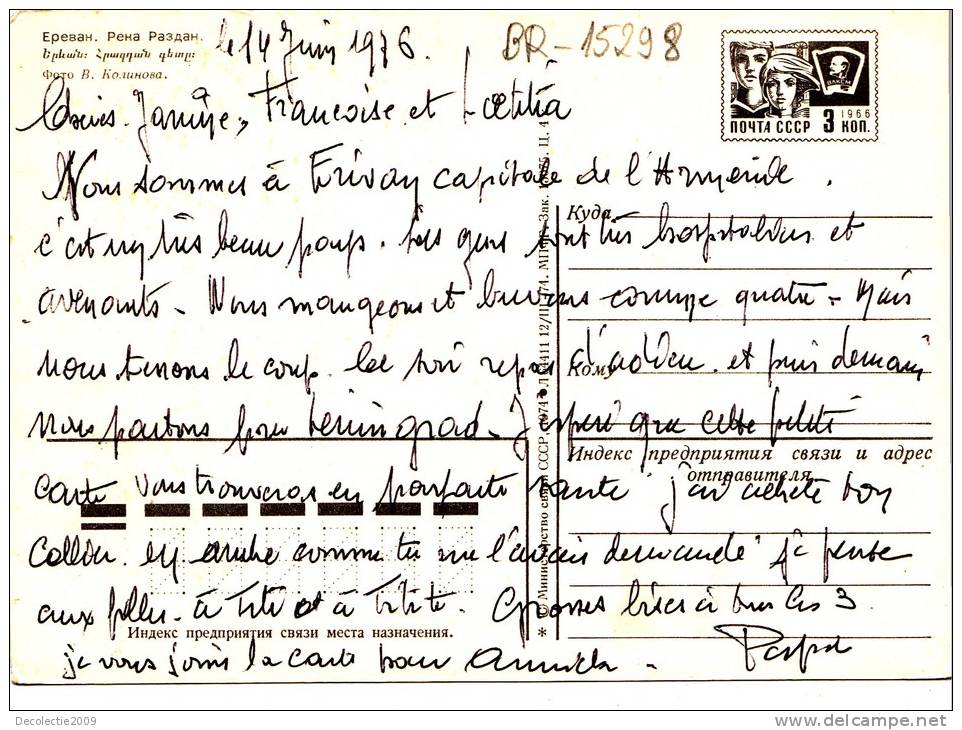 Ереван. Река Раздан.
Երևան: Հրազդան գետը:
Фото В. Колинова.
le 14 Juin 1976.
BR-15298
ВЛКСМ
1966
ПОЧТА СССР 3 КОП.
Françoise et Laetitia
Nous sommes à Erivan capitale de l'Arménie.
Куда
c'est un très beau pays. Les gens sont très hospitaliers et
avenants - Nous mangeons et buvons comme quatre - Mais
nous tenons le coup. Ce soir repas d'adieu. et puis demain
Кому
nous partons pour Leningrad - J'espère que cette petite
Индекс предприятия связи и адрес
отправителя
carte vous trouvera en parfaite santé j'ai acheté ton
collier en ambre comme tu me l'avais demandé je pense
aux filles - à Titi et à Titite. Grosses bises à tous les 3
Индекс предприятия связи места назначения.
je vous joins la carte pour
Papa
© Министерство связи СССР. 1974
Decolectie2009
www.delcampe.net